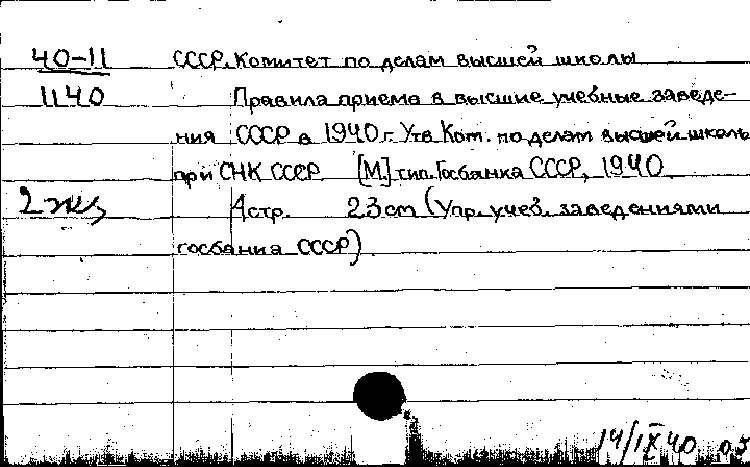 40-11 СССР. Комитет по делам высшей школы
1140 Правила приема в высшие учебные заведе-
ния СССР в 1940 г. Утв. Ком. по делам высшей школы
при СНК СССР. [М.] тип. Госбанка СССР, 1940
2 экз 4 стр. 23 cm (Упр. учеб. заведениями
госбанка СССР)
14/IX 40